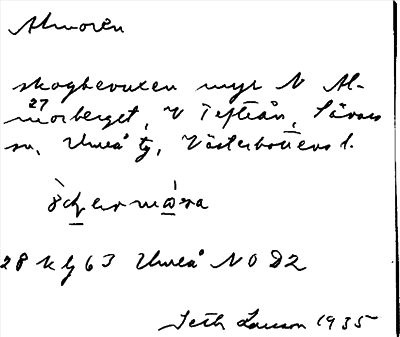 Almoren
skogbevuxen myr N Al-
27
morberget, V Tefteån, Sävars
sn, Umeå tg, Västerbottens l.
28 K g 63 Umeå NO D2
Seth Larsson 1935